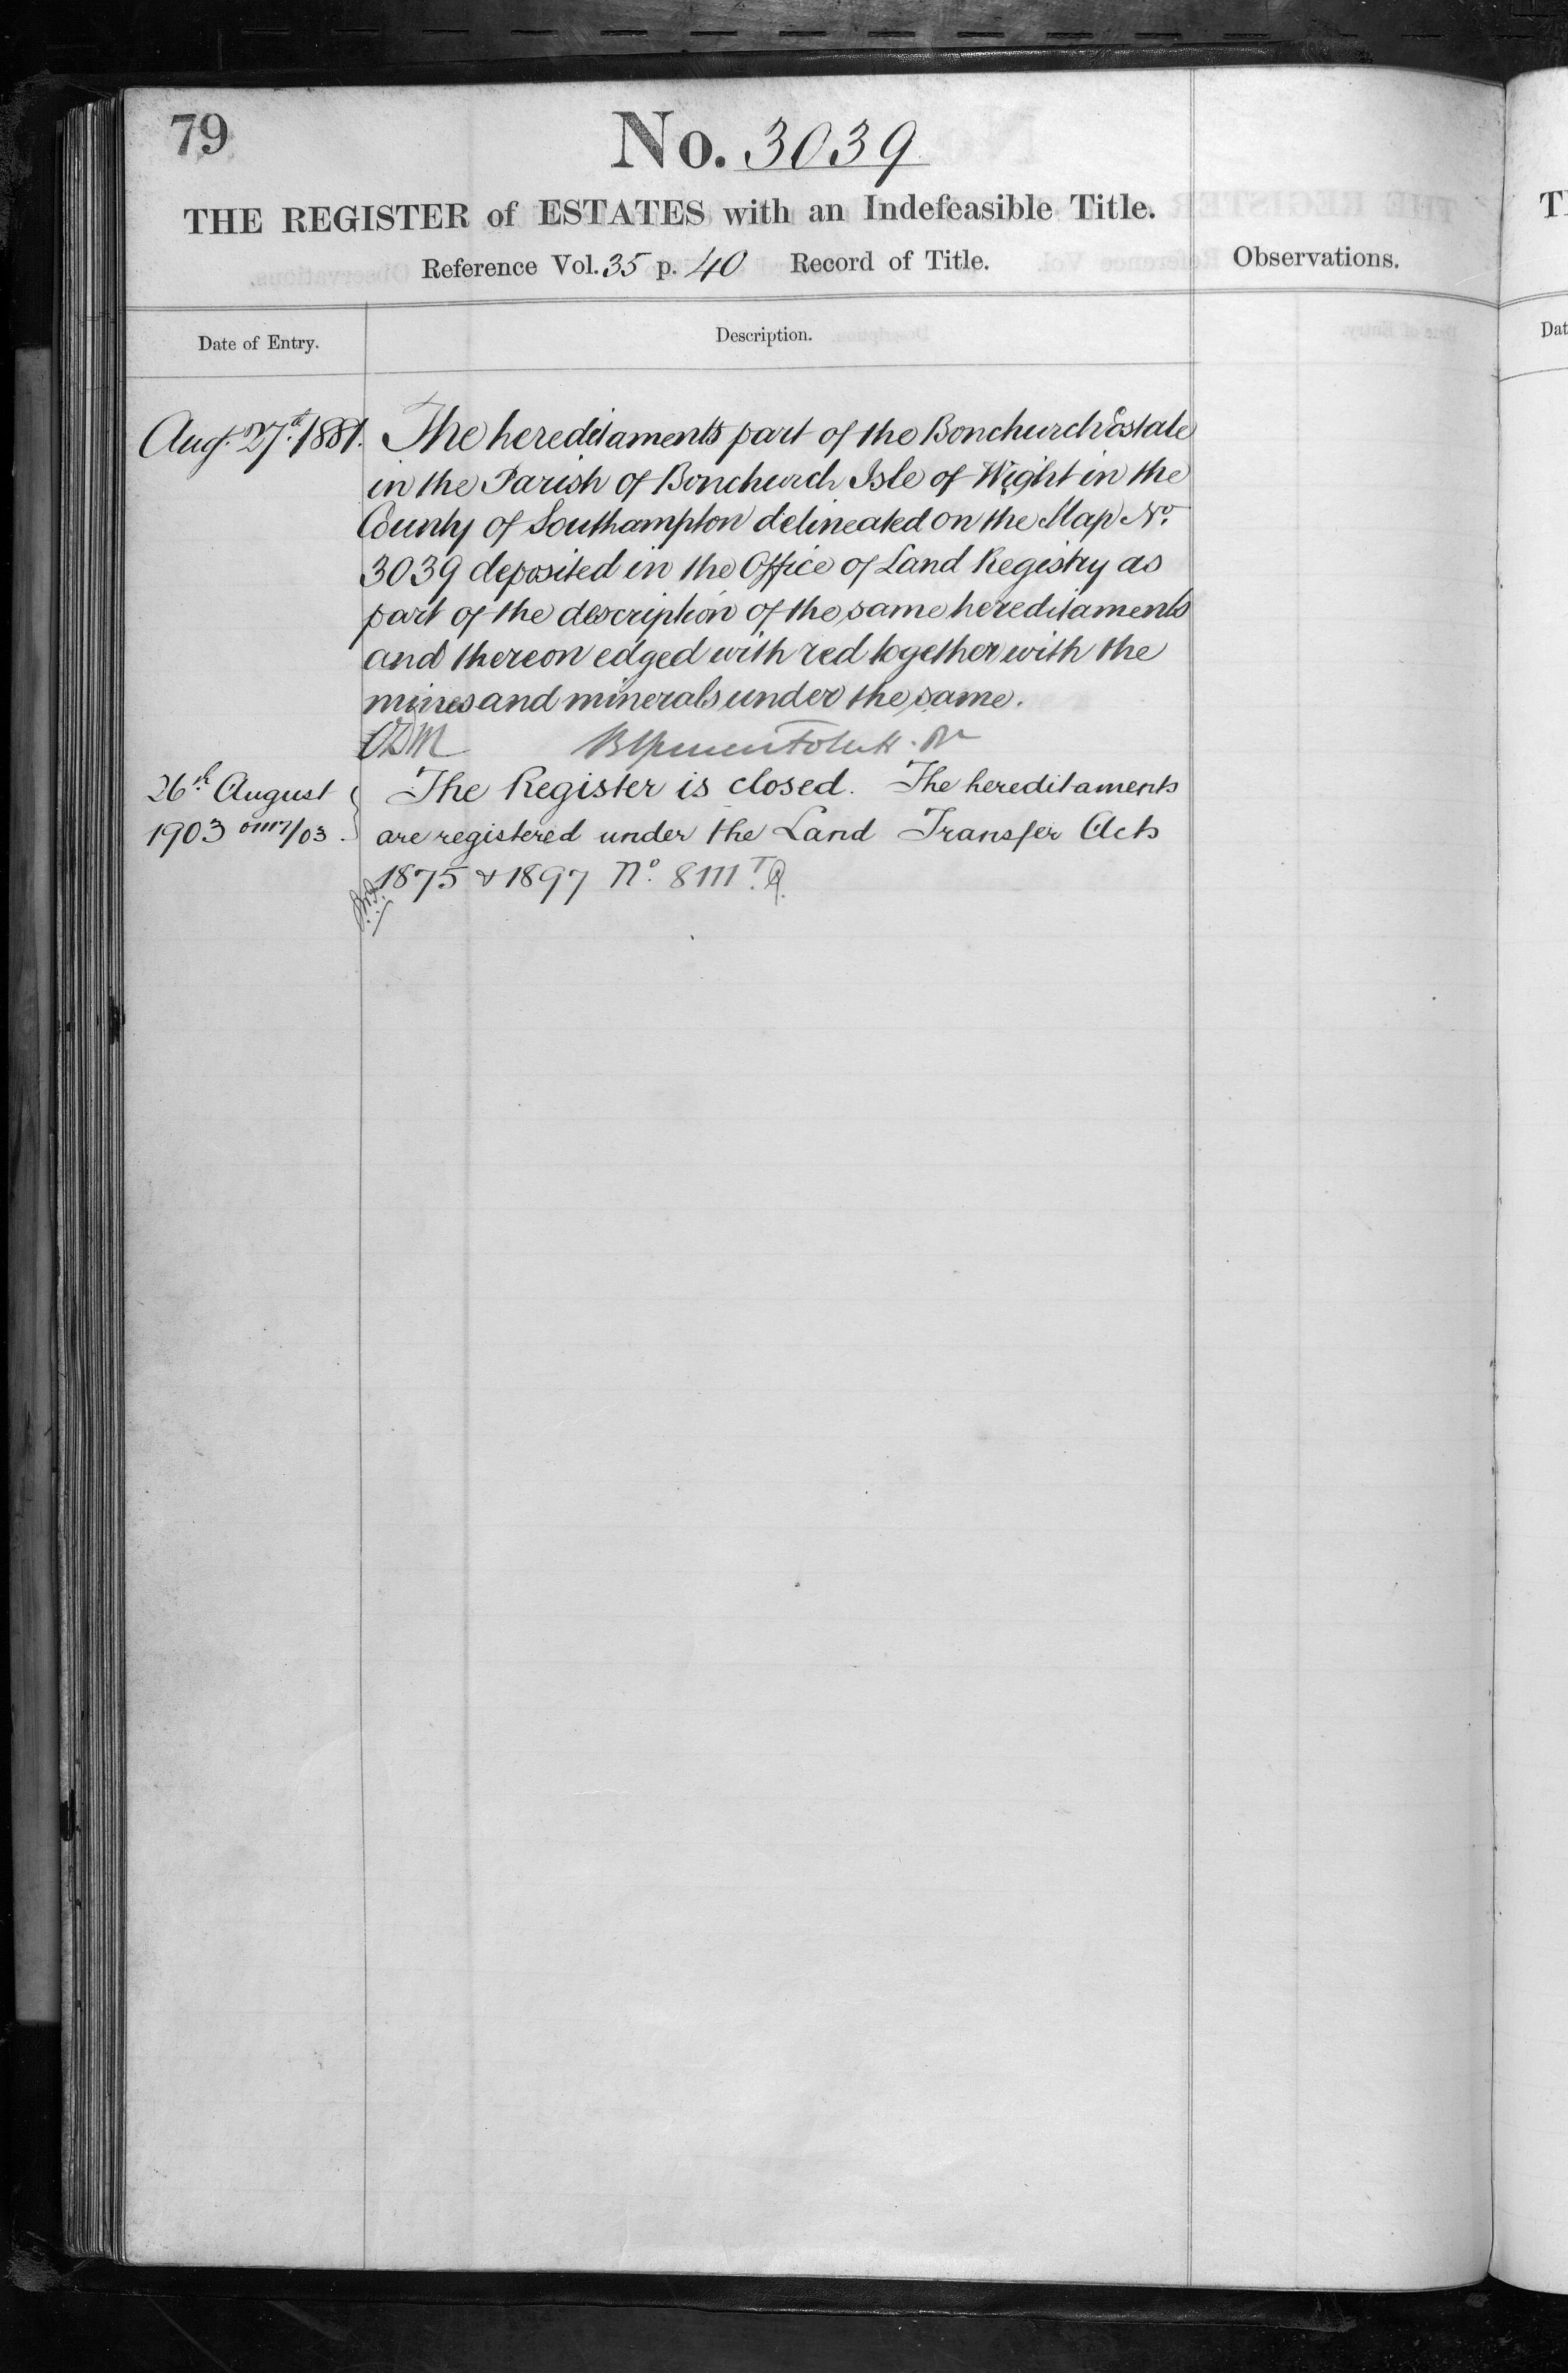 79
No. 3039
THE REGISTER of ESTATES with an Indefeasible Title.
Reference Vol. 35 p. 40 Record of Title.
Observations.
Date of Entry.
Description.
Aug. 27th. 1881. The hereditaments part of the Bonchurch Estate
in the Parish of Bonchurch Isle of Wight in the
County of Southampton delineated on the Map No.
3039 deposited in the Office of Land Registry as
part of the description of the same hereditaments
and thereon edged with red together with the
mines and minerals under the same.
26th August The Register is closed. The hereditaments
1903 /03. are registered under the Land Transfer Acts
1875 & 1897 No. 8111
T
Dat